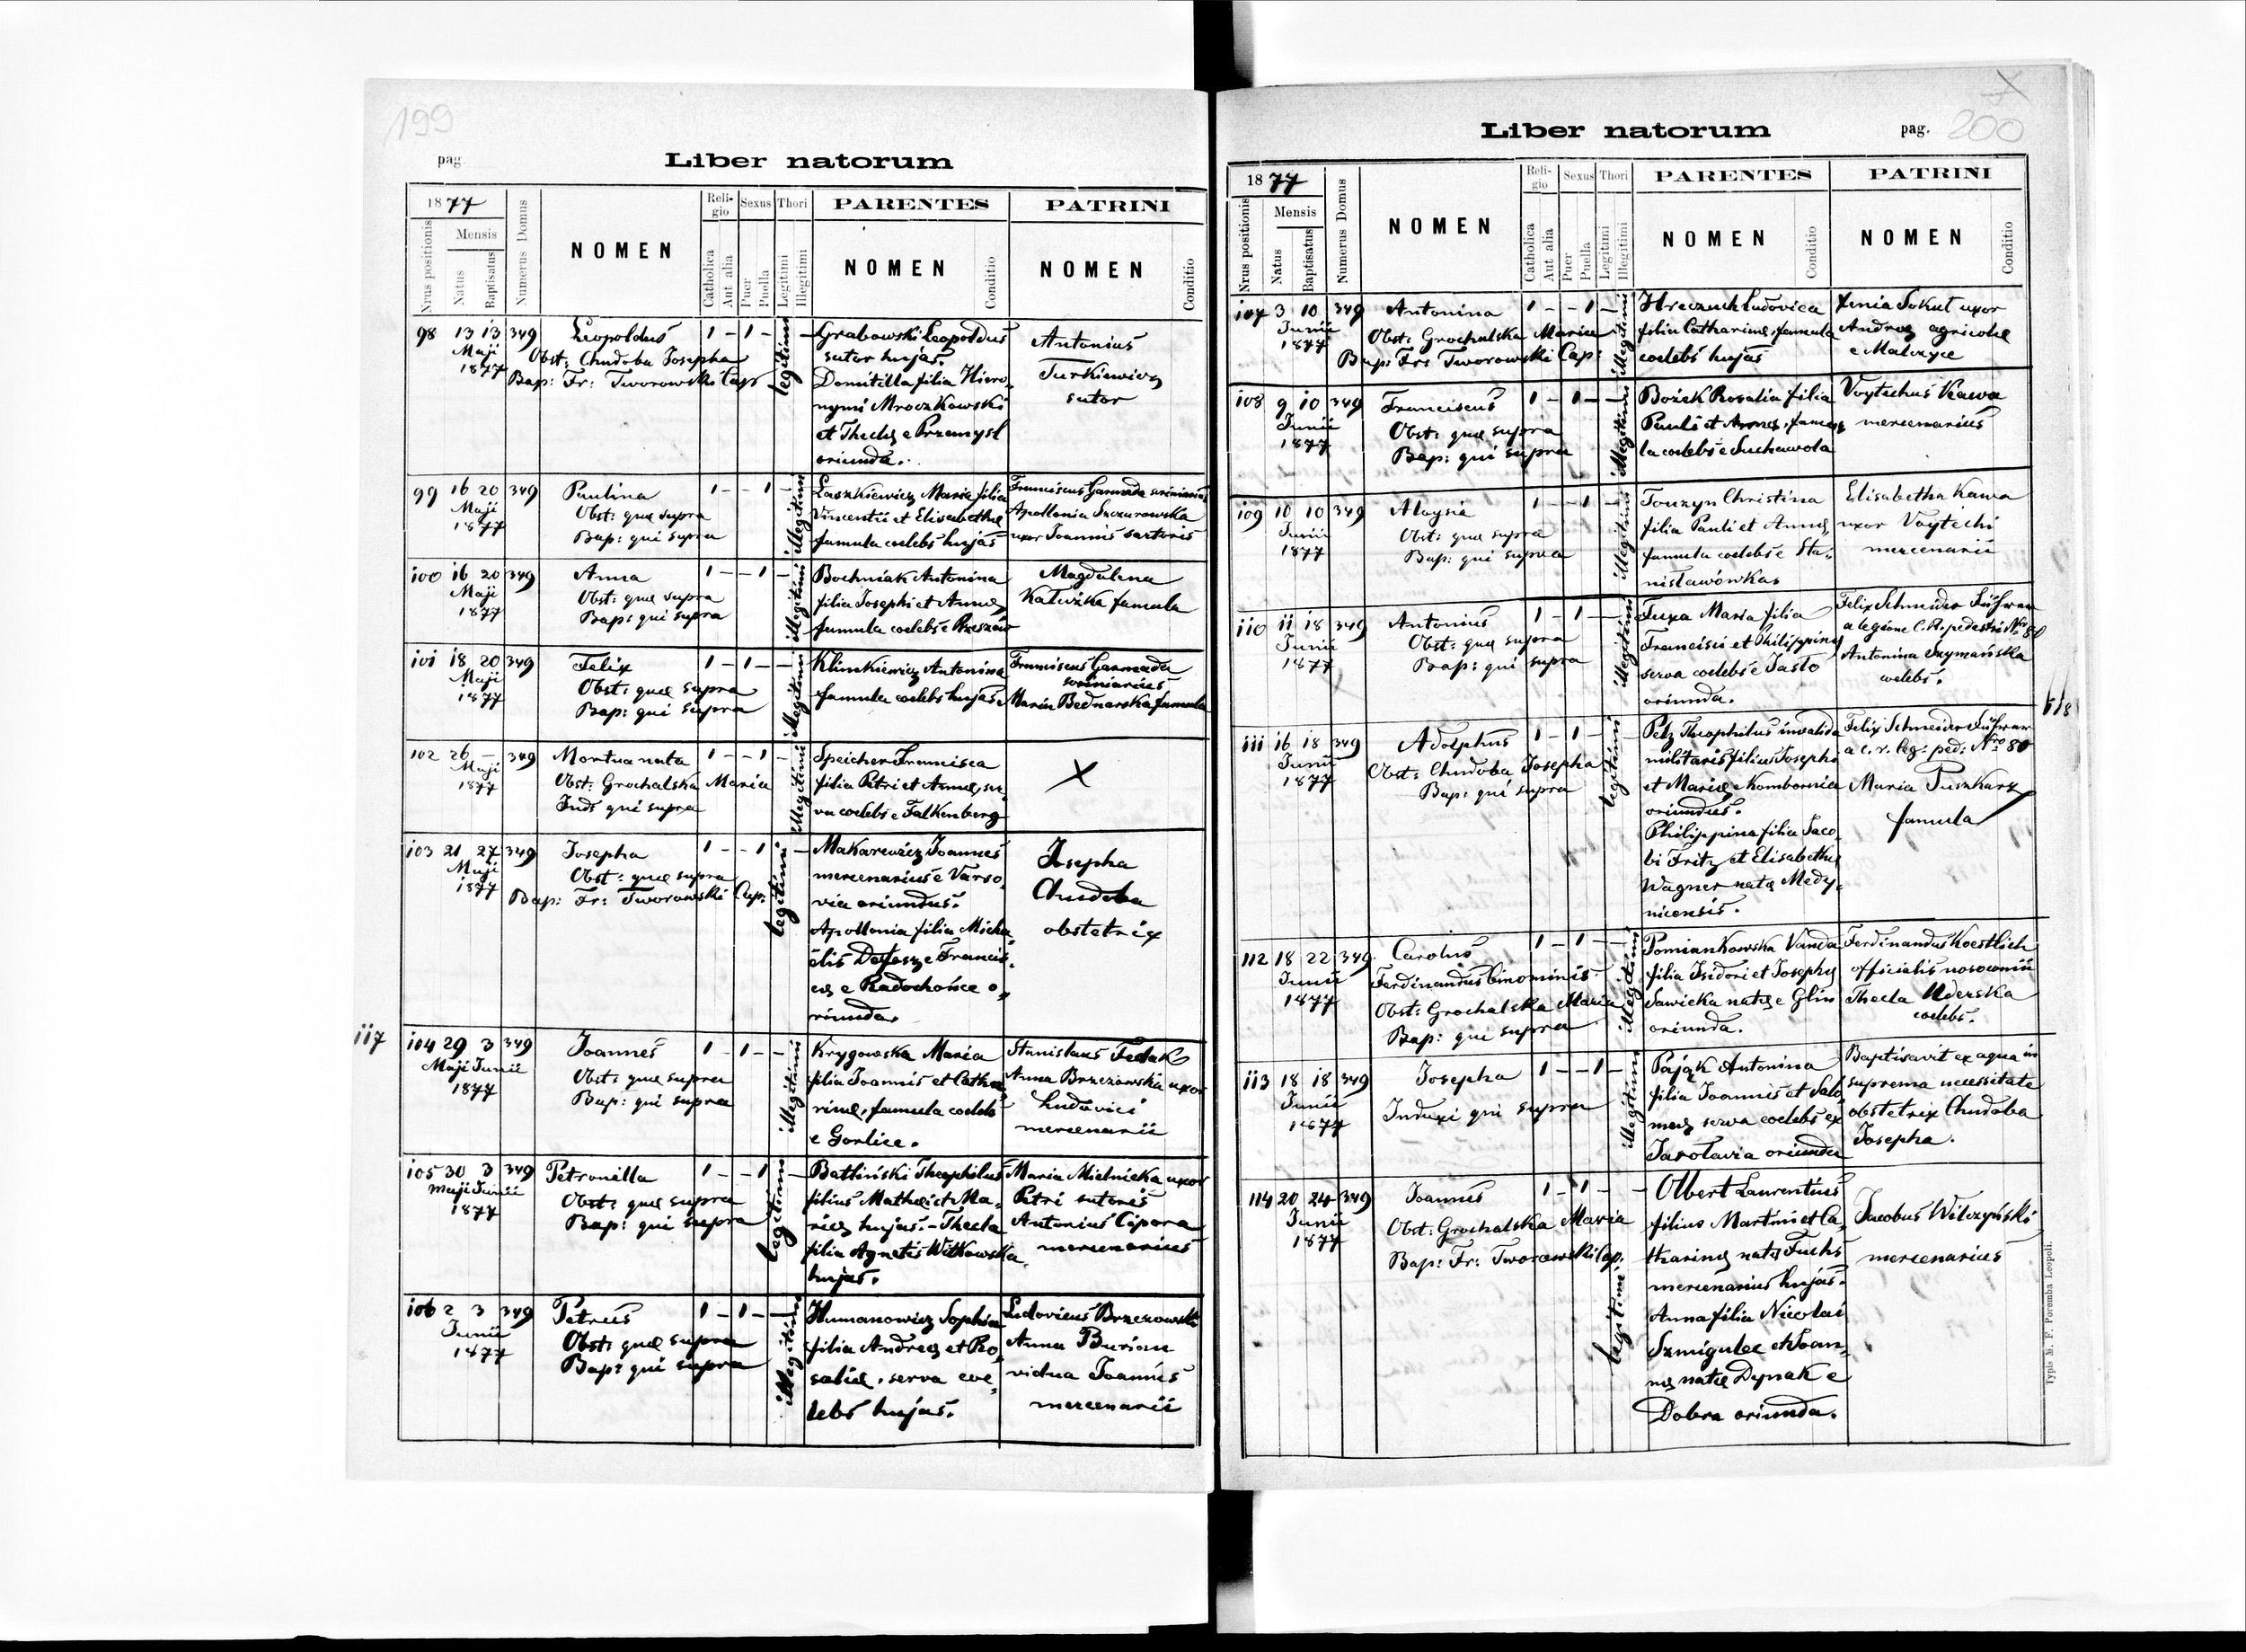 199
pag.
Liber natorum
1877
Nrus positionis
Mensis
Natus
Baptisatus
Numerus Domus
NOMEN
Religio
Catholica
Aut alia
Sexus
Puer
Puella
Thori
Legitimi
Illegitimi
PARENTES
NOMEN
Conditio
PATRINI
NOMEN
Conditio
98 13 13 349 Leopoldus 1 – 1 – –
Maji
1877
Obst: Chudoba Josepha
Bap: Fr: Tworowski Cap
legitimi
Grabowski Leopoldus
sutor hujas.
Domitilla filia Hiero-
nymi Mroczkowski
et Theclę e Przemysl
oriunda.
Antonius
Turkiewicz
sutor
99 16 20 349 Paulina 1 – – 1 –
Maji
1877
Obst: quę supra
Bap: qui supra
illegitimi
Laszkiewicz Maria filia
Vincentii et Elisabethę
famula coelebs hujas
Franciscus Garmada scriniarius
Apollonia Szczurowska
uxor Joannis sartoris
100 16 20 349 Anna 1 – – 1 –
Maji
1877
Obst: quę supra
Bap: qui supra
illegitimi
Bochniak Antonina
filia Josephi et Annę
famula coelebs e Rzeszów
Magdalena
Kałuzka famula
101 18 20 349 Felix 1 – 1 – –
Maji
1877
Obst: quę supra
Bap: qui supra
illegitimi
Klimkiewicz Antonina
famula coelebs hujas.
Franciscus Garmada
scriniarius
Maria Bednarska famula
102 26 – 349 Mortua nata 1 – – 1 –
Maji
1877
Obst: Grochalska Maria
Ind: qui supra
illegitimi
Speicher Francisca
filia Petri et Annę, ser-
va coelebs e Falkenberg
X
103 21 27 349 Josepha 1 – – 1 –
Maji
1877
Obst: quę supra
Bap: Fr: Tworowski Cap:
legitimi
Makarewicz Joannes
mercenarius e Varso-
via oriundus.
Apollonia filia Micha-
ëlis et Francis-
cę e Radochońce o-
riunda.
Josepha
Chudoba
obstetrix
117
104 29 3 349 Joannes 1 – 1 – –
Maji Junii
1877
Obst: quę supra
Bap: qui supra
illegitimi
Krygowska Maria
filia Joannis et Catha-
rinę, famula coelebs
e Gorlice.
Stanislaus Fedak
Anna Brzezowska uxor
Ludovici
mercenarii
105 30 3 349 Petronella 1 – – 1 –
Maji Junii
1877
Obst: quę supra
Bap: qui supra
legitimi
Batliński Theophilus
filius Mathei et Ma-
rię hujas. – Thecla
filia Agnetis Witkowska
hujas.
Maria Mielnicka uxor
Petri sutoris
Antonius Cipora
mercenarius
106 2 3 349 Petrus 1 – 1 – –
Junii
1877
Obst: quę supra
Bap: qui supra
illegitimi
Humanowicz Sophia
filia Andreę et Ro-
salię, serva coe-
lebs hujas.
Ludovicus Brzezowski
Anna Burian
vidua Joannis
mercenarii
X
Liber natorum
pag. 200
1877
Nrus positionis
Mensis
Natus
Baptisatus
Numerus Domus
NOMEN
Religio
Catholica
Aut alia
Sexus
Puer
Puella
Thori
Legitimi
Illegitimi
PARENTES
NOMEN
Conditio
PATRINI
NOMEN
Conditio
107 3 10 349 Antonina 1 – – 1 –
Junii
1877
Obst: Grochalska Maria
Bap: Fr: Tworowski Cap:
illegitimi
Hreczuch Ludovica
filia Catharinę, famula
coelebs hujas
Xenia Sokut uxor
Andreę agricolę
e Malczyce
108 9 10 349 Franciscus 1 – 1 – –
Junii
1877
Obst: quę supra
Bap: qui supra
illegitimi
Bożek Rosalia filia
Pauli et Annę, famu-
la coelebs e Suchawola
Voytechus Kawa
mercenarius
109 10 10 349 Aloysia 1 – – 1 –
Junii
1877
Obst: quę supra
Bap: qui supra
illegitimi
Touzyn Christina
filia Pauli et Annę
famula coelebs e Sta-
nisławówka
Elisabetha Kawa
uxor Voytechi
mercenarii
110 11 18 349 Antonius 1 – 1 – –
Junii
1877
Obst: quę supra
Bap: qui supra
illegitimi
Fuxa Maria filia
Francisci et Philippinę
serva coelebs e Jasło
oriunda.
Felix Schneider Führer
a legione C.R. pedestri Nro 80
Antonina Szymańska
coelebs.
118
111 16 18 349 Adolphus 1 – 1 – –
Junii
1877
Obst: Chudoba Josepha
Bap: qui supra
legitimi
Pelz Theophilus invalida
militaris filius Josephi
et Marię e Kombornia
oriundus.
Philippina filia Jaco-
bi Fritz et Elisabethę
Wagner natę Medy-
nicensis.
Felix Schneider Führer
a c. r. leg: ped: Nro 80
Maria Puszkarz
famula
112 18 22 349 Carolus 1 – 1 – –
Junii
1877
Ferdinandus binominis.
Obst: Grochalska Maria
Bap: qui supra
illegitimi
Pomiankowska Vanda
filia Isidori et Josephę
Sawicka natę e Glin
oriunda.
Ferdinandus Koestlich
officialis nosocomii
Thecla Uderska
coelebs.
113 18 18 349 Josepha 1 – – 1 –
Junii
1877
Induxi qui supra
illegitimi
Pająk Antonina
filia Joannis et Salo-
meę serva coelebs ex
Jaroslavia oriunda
Baptisavit ex aqua in
suprema necessitate
obstetrix Chudoba
Josepha.
114 20 24 349 Joannes 1 – 1 – –
Junii
1877
Obst: Grochalska Maria
Bap: Fr: Tworowski Cap.
legitimi
Olbert Laurentius
filius Martini et Ca-
tharinę natę Fuchs
mercenarius hujas.
Anna filia Nicolai
Szmigulec et Joan-
nę natę Dynak e
Dobra oriunda.
Jacobus Wilczyński
mercenarius
Typis M. F. Poremba Leopoli.